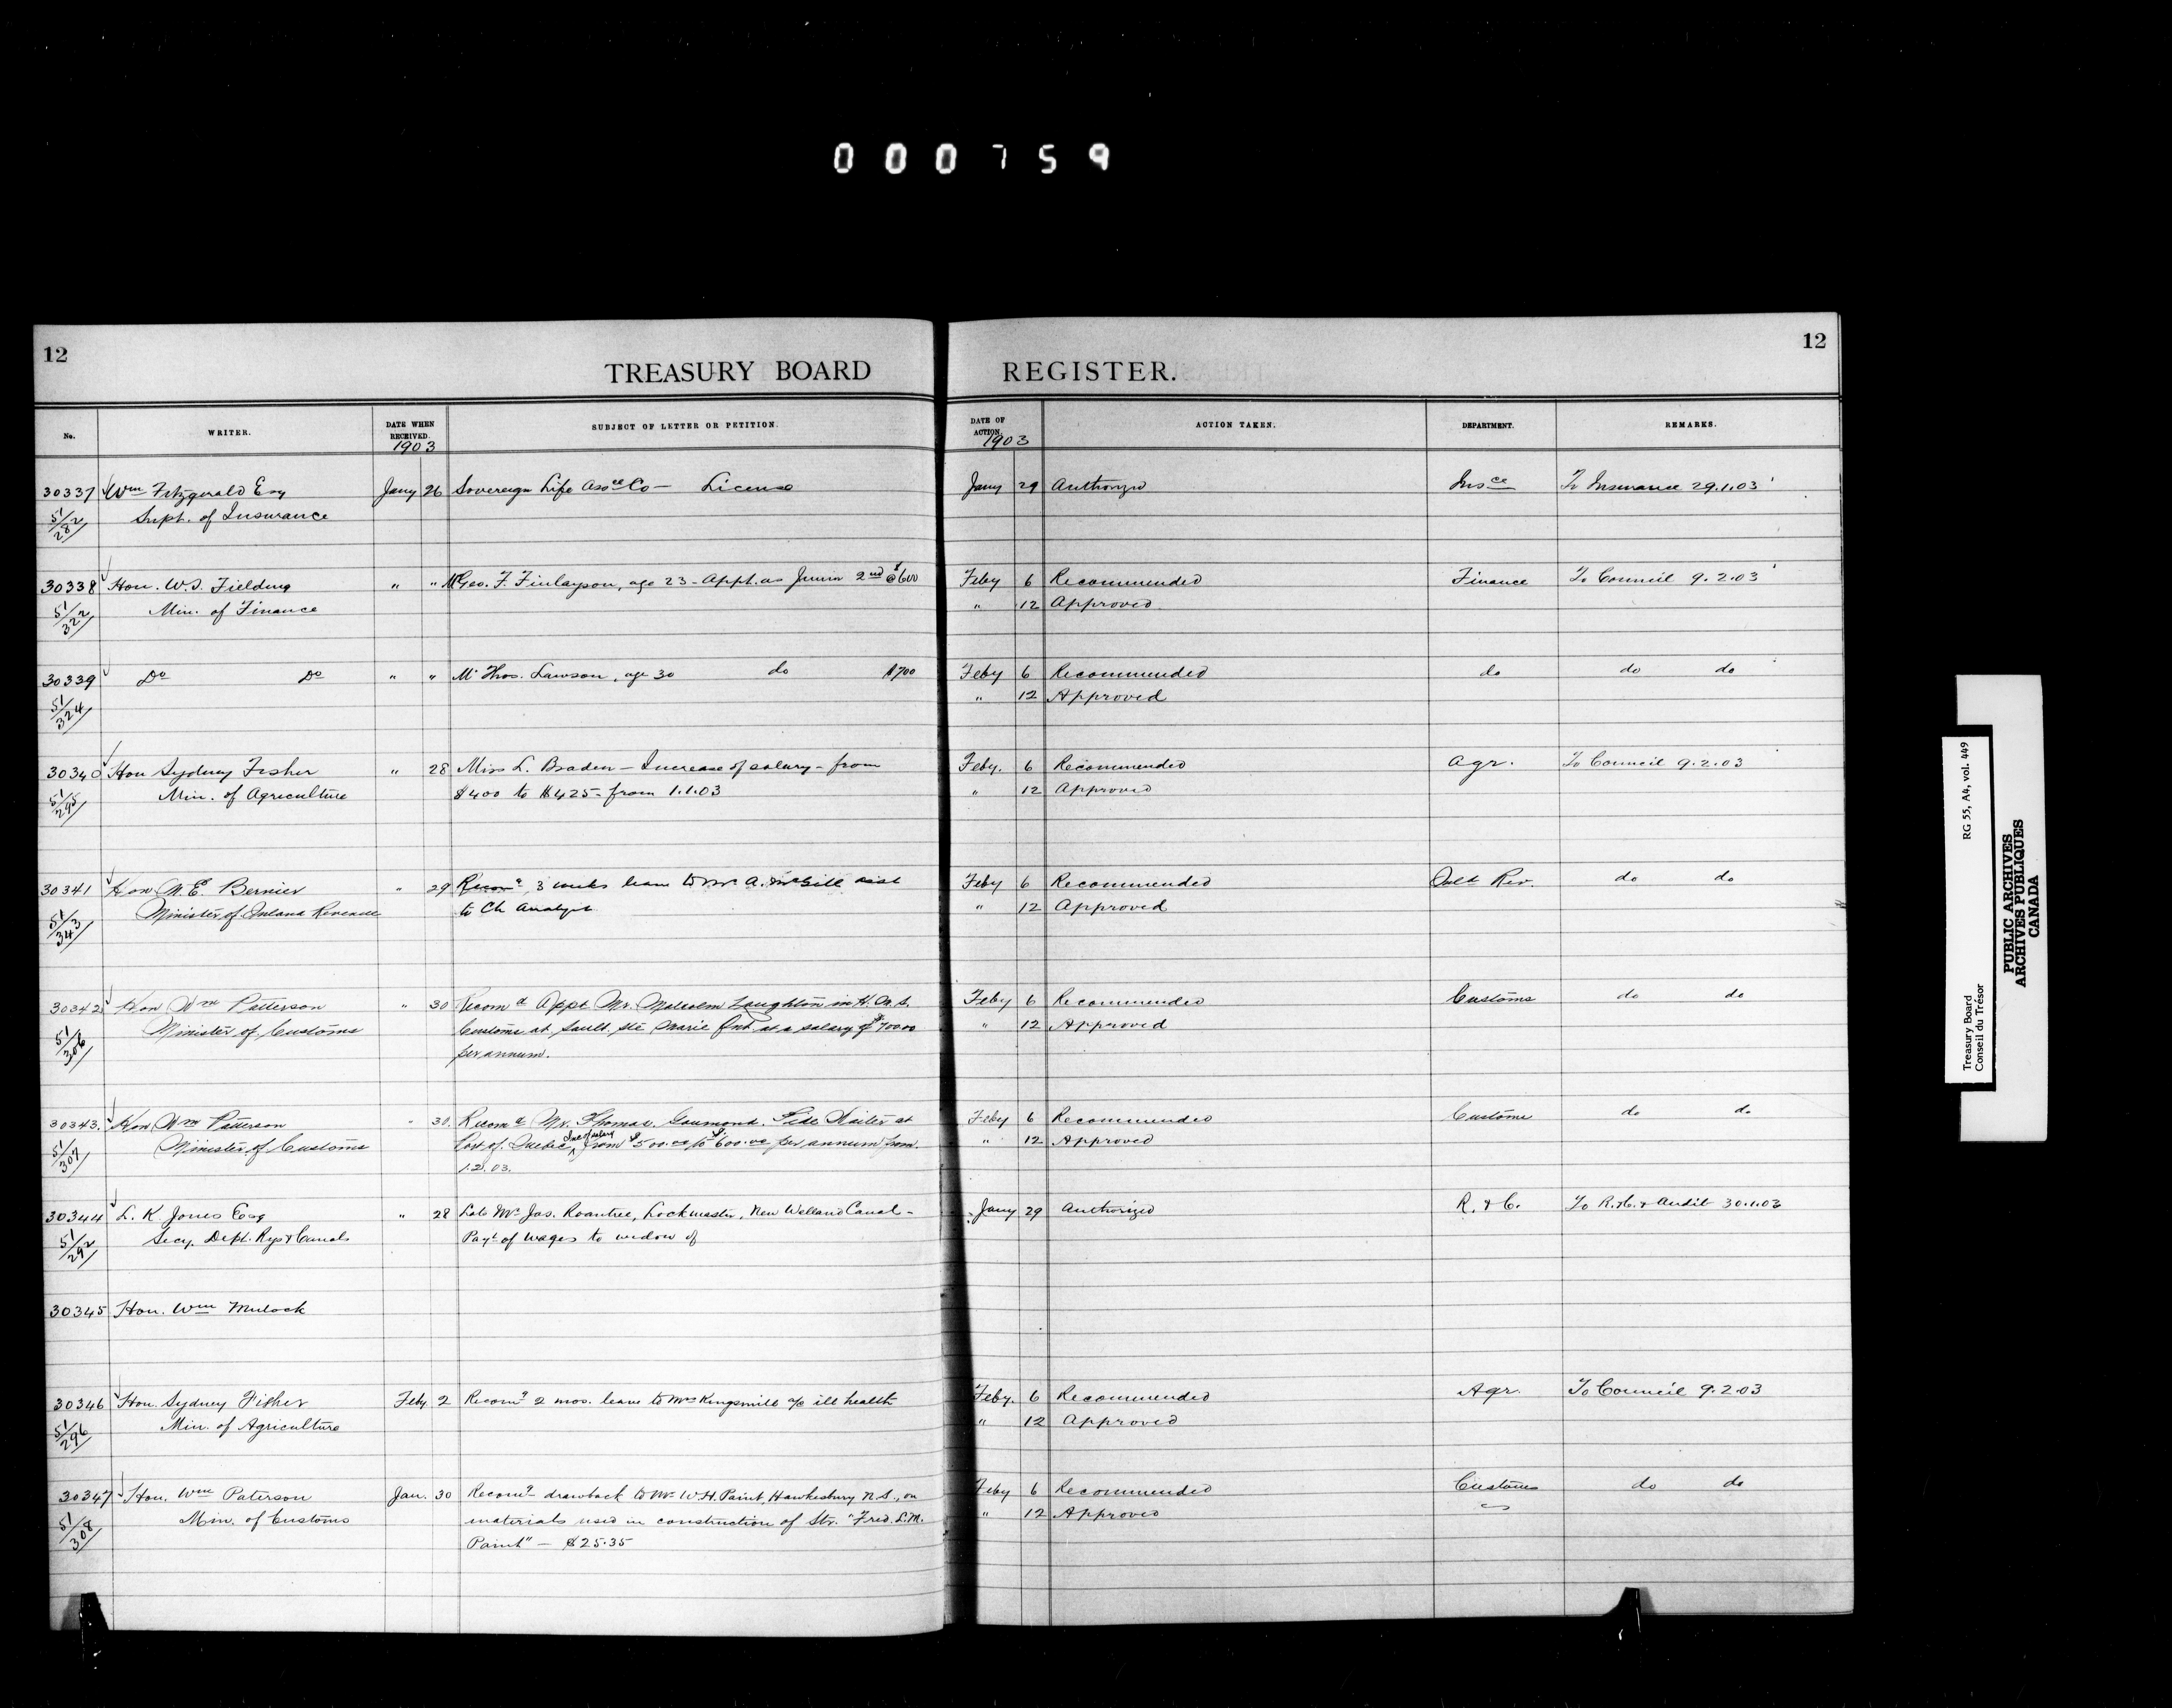 000759
12
12
TREASURY BOARD REGISTER.
No. WRITER. DATE WHEN RECEIVED. SUBJECT OF LETTER OR PETITION. DATE OF ACTION. ACTION TAKEN. DEPARTMENT. REMARKS.
1903 1903
30337 Wm Fitzgerald Esq Jany 26 Sovereign Life Assce Co — License Jany 29 Authorized Insce To Insurance 29.1.03
51/282 Supt. of Insurance
30338 Hon. W.S. Fielding " " Mr Geo. F. Finlayson, age 23 - Appt. as Junior 2nd @ $600 Feby 6 Recommended Finance To Council 9.2.03
51/322 Min. of Finance " 12 Approved
30339 Do Do " " Mr Thos. Lawson, age 30 do $700 Feby 6 Recommended do do do
51/324 " 12 Approved
30340 Hon Sydney Fisher " 28 Miss L. Braden — Increase of salary - from Feby. 6 Recommended Agr. To Council 9.2.03
51/295 Min. of Agriculture $400 to $425 - from 1.1.03 " 12 Approved
30341 Hon M.E. Bernier " 29 Recomd 3 weeks leave to Mr A. McGill asst Feby 6 Recommended Inld Rev. do do
51/343 Minister of Inland Revenue to Ch Analyst " 12 Approved
30342 Hon Wm Patterson " 30 Recomd Appt Mr. Malcolm Laughton in H.M.S. Feby 6 Recommended Customs do do
51/306 Minister of Customs Customs at Sault Ste Marie Ont at a salary of $700.00 " 12 Approved
per annum.
30343. Hon Wm Patterson " 30. Recomd Mr. Thomas Gaumond. Tide Waiter at Feby 6 Recommended Customs do do
51/307 Minister of Customs Port of Quebec Inc of salary from $500.00 to $600.00 per annum from " 12 Approved
1.2.03.
30344 L. K Jones Esq " 28 Late Mr Jas. Roantree, Lockmaster, New Welland Canal - Jany 29 Authorized R. & C. To R. & C. & Audit 30.1.03
51/292 Secy. Dept. Rys & Canals Payt of wages to widow of
30345 Hon. Wm Mulock
30346 Hon. Sydney Fisher Feby. 2 Recomd 2 mos. leave to Mrs Kingsmill a/c ill health Feby. 6 Recommended Agr. To Council 9.2.03
51/296 Min. of Agriculture " 12 Approved
30347 Hon. Wm Paterson Jan. 30 Recomd drawback to Mr W.H. Paint, Hawkesbury N.S., on Feby 6 Recommended Customs do do
51/308 Min. of Customs materials used in construction of Str. "Fred. L.M. " 12 Approved
Paint" — $25.35
Treasury Board RG 55, A4, vol. 449
Conseil du Trésor
PUBLIC ARCHIVES
ARCHIVES PUBLIQUES
CANADA